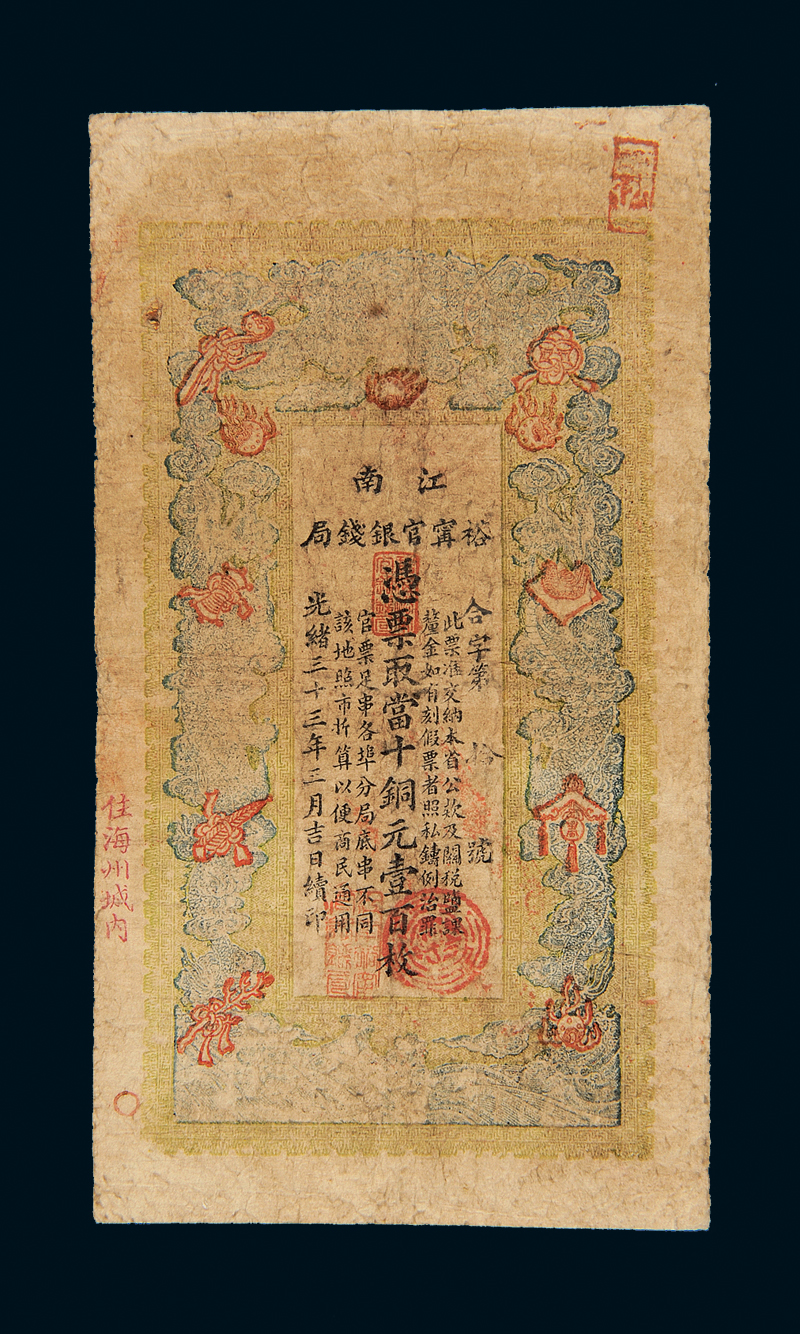 江南
裕寧官銀錢局
合字第 拾 號
此票准交納本省公欵及關稅鹽課
釐金如有刻假票者照私鑄例治罪
憑票取當十銅元壹百枚
官票足串各埠分局底串不同
該地照市折算以便商民通用
光緒三十三年三月吉日續印
住海州城內